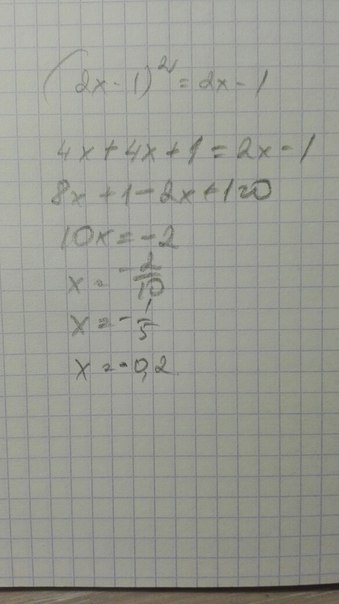 (2x-1)² = 2x-1
4x+4x+1=2x-1
8x+1-2x+1=0
10x=-2
x=-2/10
x=-1/5
x=-0,2